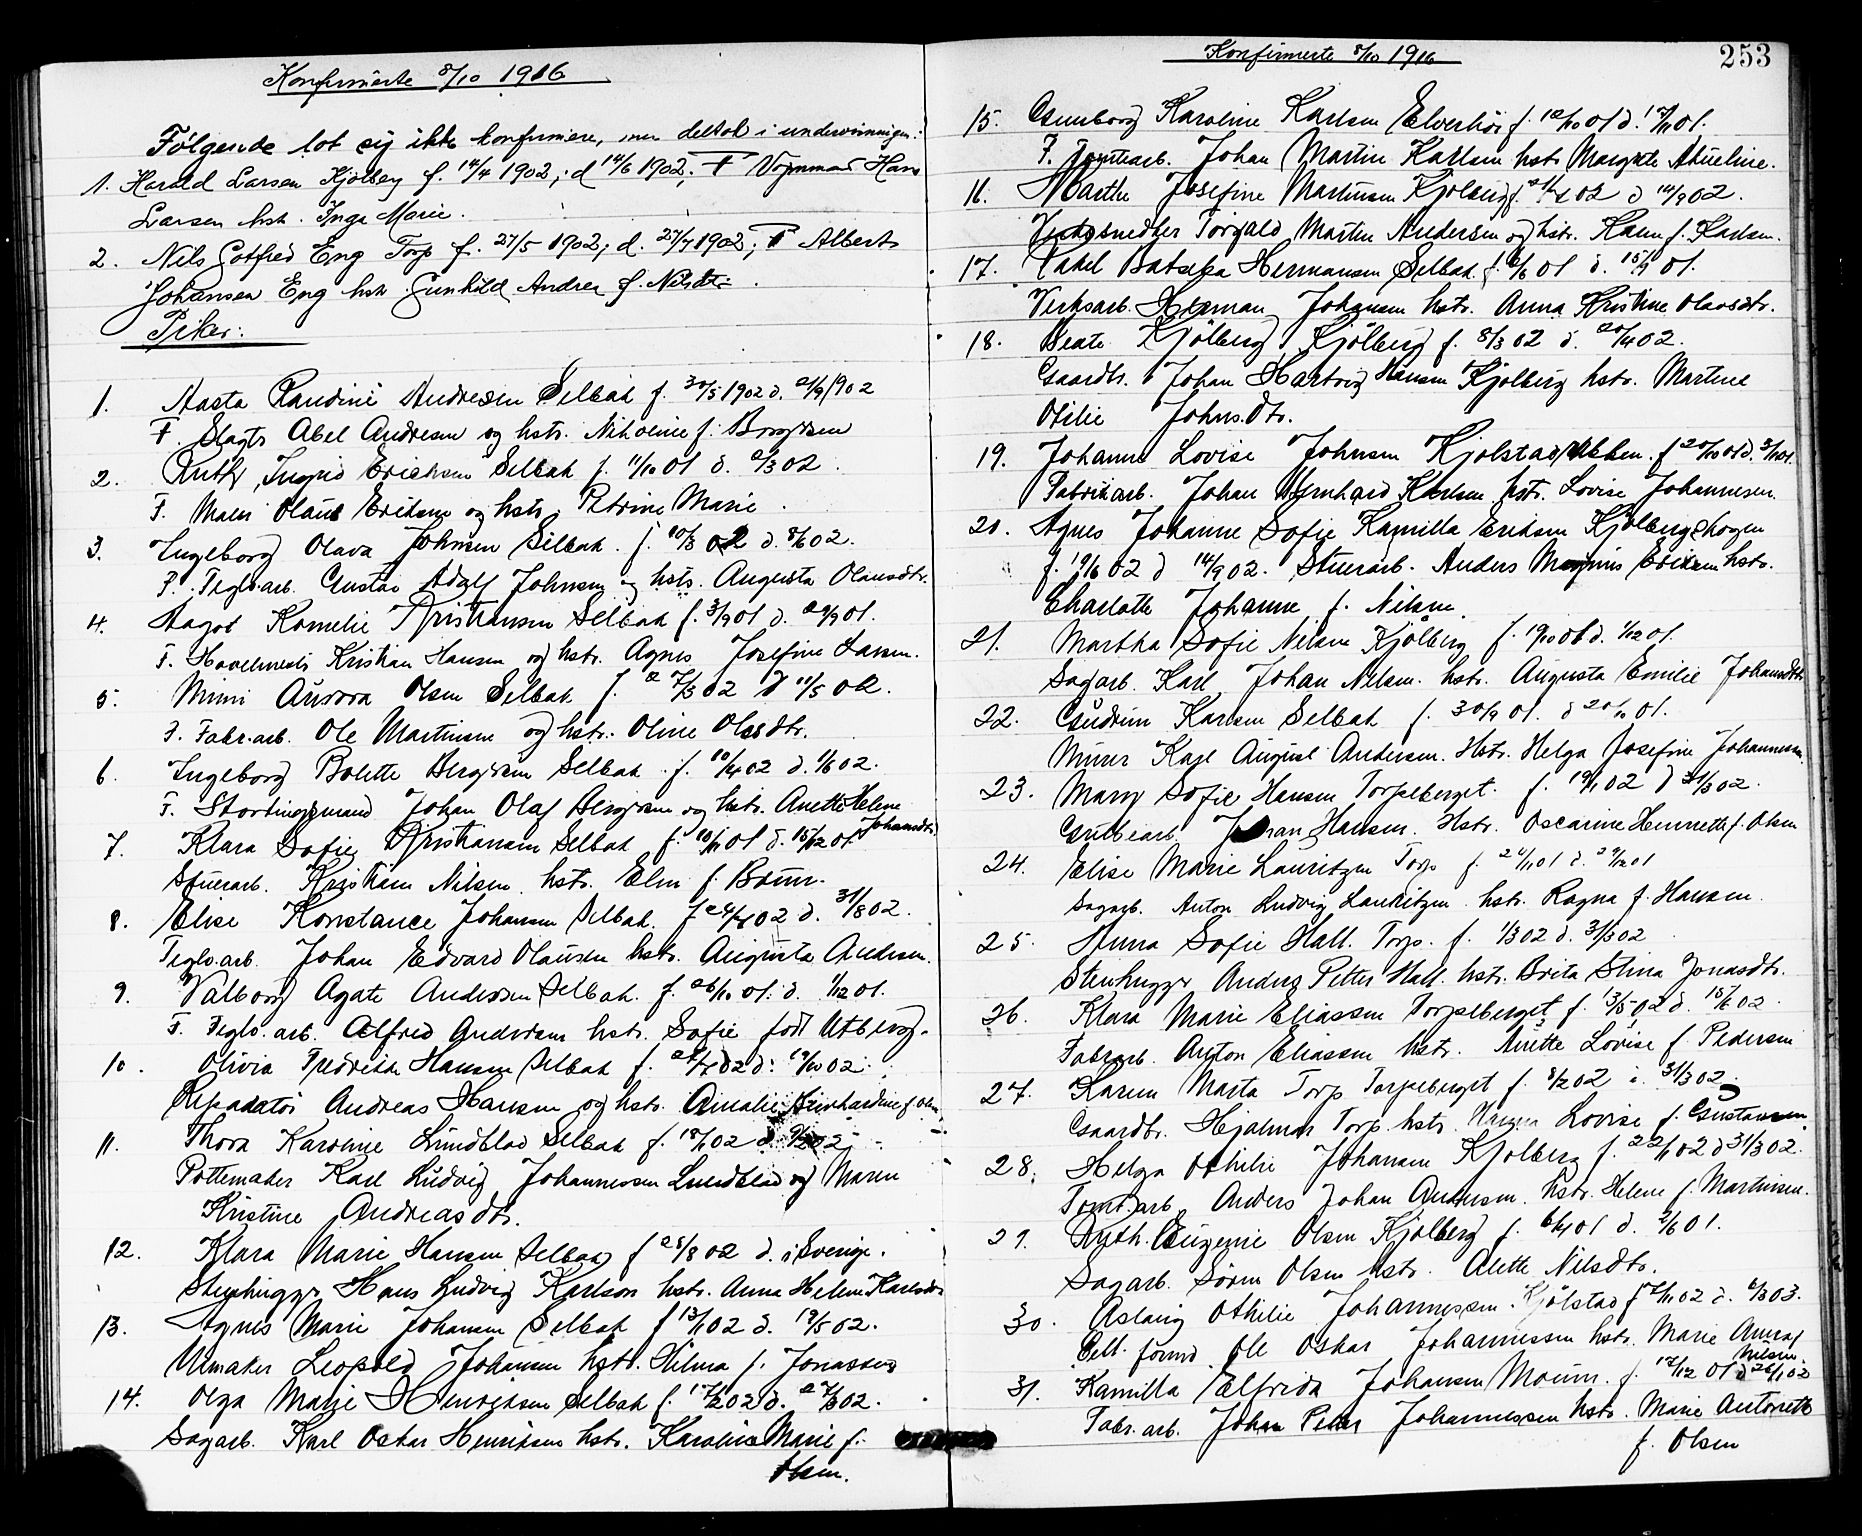 Konfirmerte 8/10 1916
Følgende lot sig ikke konfirmere, men deltok i undervisningen:
1. Harald Larsen Kjølberg f. 14/4 1902; d 14/6 1902; F Vognmand Hans
Larsen hst. Inga Marie.
2. Nils Gotfred Eng Torp f. 27/5 1902; d. 27/7 1902; F Albert
Johansen Eng hst Gunhild Andrea f. Nilsdtr.
Piker:
1. Aasta Randine Andresen Selbak f. 30/5 1902 d. /9 1902
F. Slagter Abel Andresen og hstr. f. Borgersen
2. Ruth Ingrid Eriksen Selbak f. 11/10 01 d. 2/3 02.
F. Maler Olaus Eriksen og hstr. Petrine Marie.
3. Ingeborg Olava Johnsen Selbak. f. 10/3 02 d. 8/6 02.
F. Teglv.arb. Gustav Adolf Johnsen og hstr. Augusta Olausdtr.
4. Aagot Kornelie Kristiansen Selbak f. 3/9 01 d. 29/9 01.
F. Hovelmester Kristian Hansen og hstr. Agnes Josefine Larsen.
5. Mimi Aurora Olsen Selbak f. 27/3 02 d 11/5 02.
F. Fabr.arb. Ole Martinsen og hstr. Oline Olesdtr.
6. Ingeborg Bolette Bergersen Selbak f. 10/4 02 d. 1/6 02.
F. Stortingsmand Johan Olaf Bergersen og hstr. Anette Helene
Johansdtr.
7. Klara Sofie Kristiansen Selbak f. 10/11 01 d. 15/12 01.
Stuerarb. Kristian Nilsen hstr. Elen f. Bruun.
8. Elise Konstance Johansen Selbak. f 24/4 02 d. 31/8 02.
Teglv.arb. Johan Edvard Olausen hstr. Augusta Andersen.
9. Valborg Agate Andersen Selbak. f. 26/10 01. d. 1/12 01.
F. Teglv.arb. Alfred Andersen hstr. Sofie født Utberg.
10. Olivia Fredrikke Hansen Selbak f. d. 19/10 02.
Reparatør Andreas Hansen og hstr. Amalie Reinhardine f. Olsen
11. Thora Karoline Lundblad Selbak f. 18/1 02 d.
Pottemaker Karl Ludvig Johannessen Lundblad og Maren
Kristine Andreasdtr.
12. Klara Marie Hansen Selbak f 25/8 02 d. i Sverige.
Stenhugger Hans Ludvig Karlson hstr. Anna Helene Karlsdtr
13. Agnes Marie Johansen Selbak f 13/1 02 d. 19/5 02.
Urmaker Leopold Johansen hstr. Hilma f. Jonassen
14. Olga Marie Henriksen Selbak f. 17/2 02 d. 27/3 02.
Sagarb. Karl Oskar Henriksen hstr. Karoline Marie f.
Olsen.
Konfirmerte 8/10 1916
253
15. Gunborg Karoline Karlsen Elverhøi f. 12/10 01 d. 17/11 01.
F. Tomtearb. Johan Martin Karlsen hstr Margrete Abueline.
16. Marthe Josefine Martinsen Kjølberg f. 02 d 14/9 02.
Verksmed Torvald Martin Andersen og hstr. Karen f. Karlsen.
17. Rakel Batseba Hermansen Selbak f. 6/6 01 d. 15/9 01.
Verksarb. Herman Johansen hstr. Anna Kristine Olavsdtr.
18. Beate Kjølberg Kjølberg f. 8/3 02 d. 20/4 02.
Gaardbr. Johan Hartvig Hansen Kjølberg hstr. Martine
Otilie Johns.dtr.
19. Johanne Lovise Johnsen Kjølstad f 20/10 01 d. 3/11 01.
Fabrikarb. Johan Bernhard Karlsen hstr. Lovise Johannesen.
20. Agnes Johanne Sofie Kamilla Eriksen Kjølbergskogen
f. 19/6 02 d 14/9 02. Stuerarb. Anders Magnus Eriksen hstr.
Charlotte Johanne f. Nilsen.
21. Martha Sofie Nilsen Kjølberg f. 19/10 01 d. 1/12 01.
Sagarb. Karl Johan Nilsen. hstr. Augusta Emilie Johansdtr
22. Gudrun Karlsen Selbak f. 30/9 01. d 20/10 01.
Murer Karl August Andersen. Hstr. Helga Josefine Johannessen.
23. Mary Sofie Hansen Torpeberget. f. 19/1 02 d 31/3 02.
Grubearb. Johan Hansen. Hstr. Oscarine Henriette f. Olsen
24. Elise Marie Lauritzen Torp f. 24/11 01 d. 29/12 01
Sagarb. Anton Ludvig Lauritzen hstr. Ragna f. Hansen.
25. Anna Sofie Hall. Torp. f. 1/3 02 d. 31/3 02
Stenhugger Anders Petter Hall. hstr. Brita Stina Jonasdtr.
26. Klara Marie Eliassen Torpeberget f. 13/5 02 d. 15/6 02.
Fabrarb. Anton Eliassen hstr. Anette Lovise f. Pedersen
27. Karen Marta Torp Torpeberget f. 8/2 02 d. 31/3 02
Gaardbr. Hjalmar Torp hstr. Lovise f. Gustavsen
28. Helga Othilie Johansen Kjølberg f. 22/1 02 d 31/3 02.
Tomt.arb. Anders Johan Andersen. hstr. Helene f. Martinsen.
29. Ruth Eugenie Olsen Kjølberg f. 6/4 01 d. 2/6 01.
Sagarb. Søren Olsen hstr. Alette Nilsdtr.
30. Aslaug Othilie Johannessen. Kjølstad f 7/11 02 d. 6/3 03.
Cell. formd. Ole Oskar Johannessen hstr. Marie Anna f
Nilsen.
31. Kamilla Elfrida Johansen Moum. f. 17/12 01 d 26/1 02
Fabr.arb. Johan Peter Johannessen hstr. Marie Antonette
f. Olsen